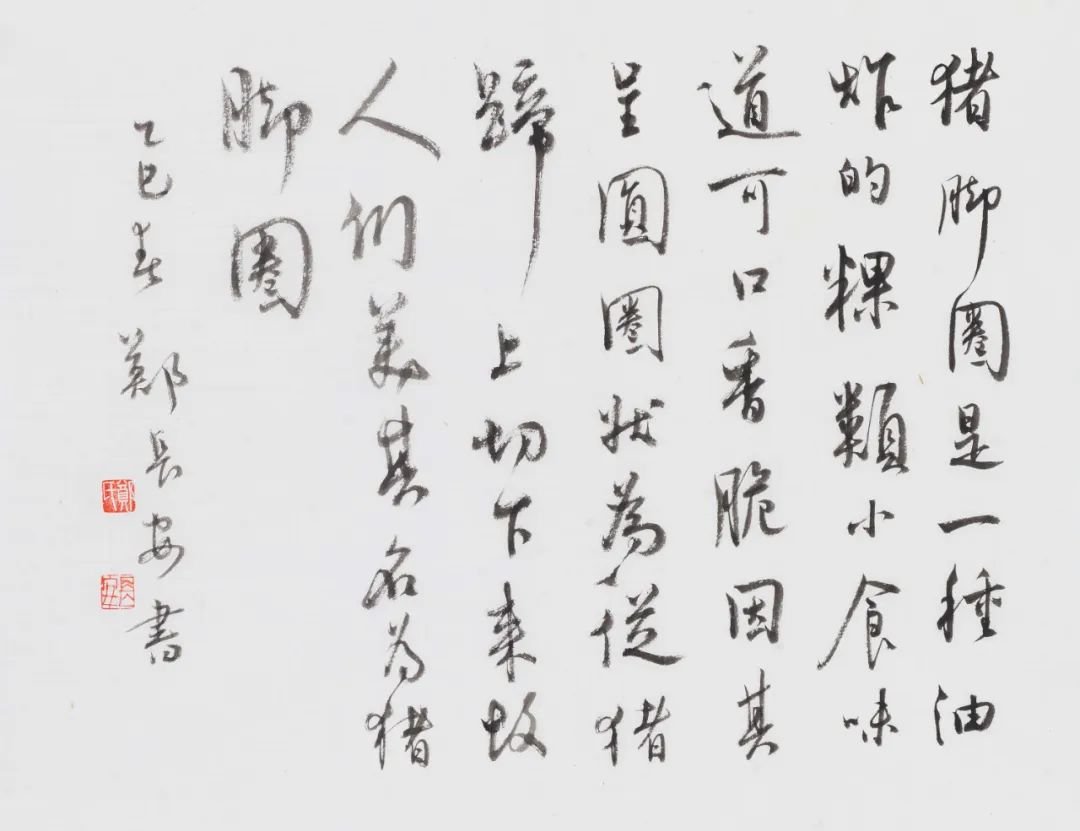 猪脚圈是一種油
炸的粿類小食味
道可口香脆因其
呈圓圈狀為從猪
蹄上切下来故
人们美其名为猪
脚圈
乙巳春鄭長安書